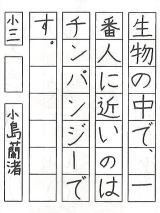 生物の中で、一
番人に近いのは
チンパンジーで
す。
小三 小島蘭渚